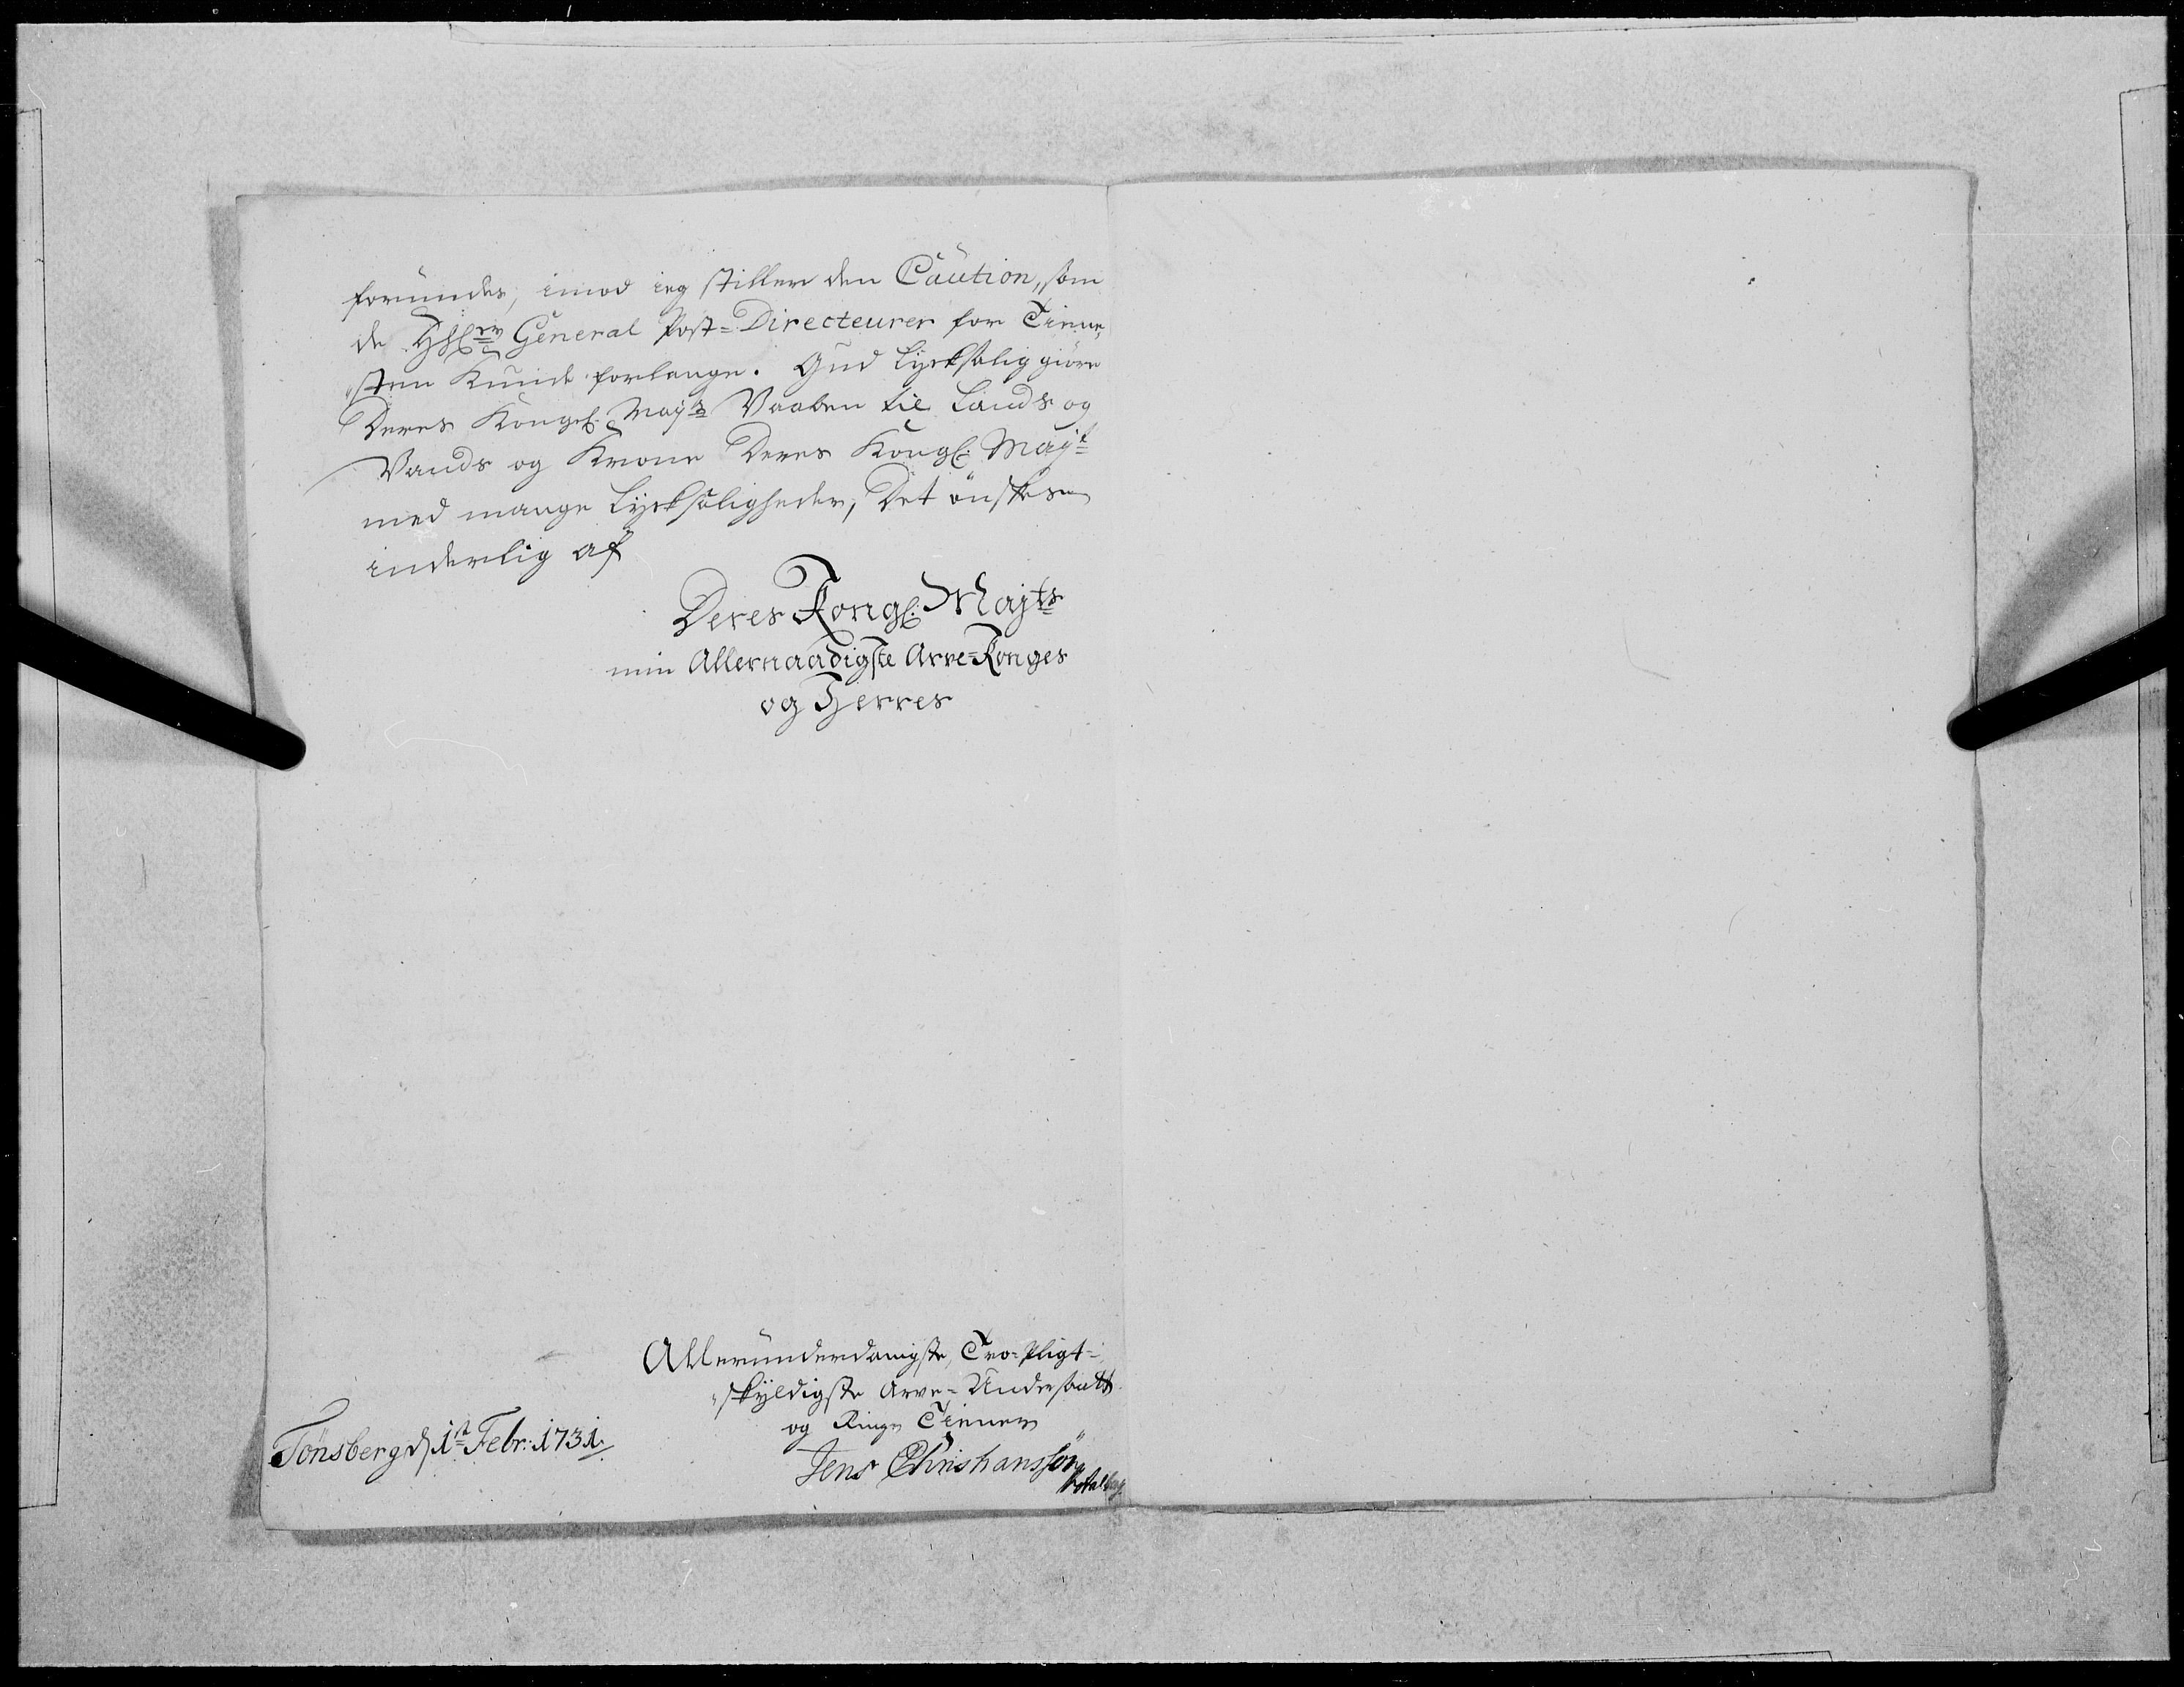 forundes, imod ieg stiller den Caution, som
de General Post-Directeurer for Tiene-
"sten Kunde forlange. Gud lyksalig giöre
Deres Kongl: Mayts Vaaben til Lands og
Vands og Krone Deres Kongl: Mayt
med mange Lyksaligheder, Det ønskes
inderlig af
Deres Kongl: Mayts
min Allernaadigste Arve-Konges
og Herres
Allerunderdanigste, Tro-Pligt-
"skyldigste Arve-Undersaatt
og Ringe Tienner
Tönsberg d 1st Febr: 1731.
Jens Christiansson